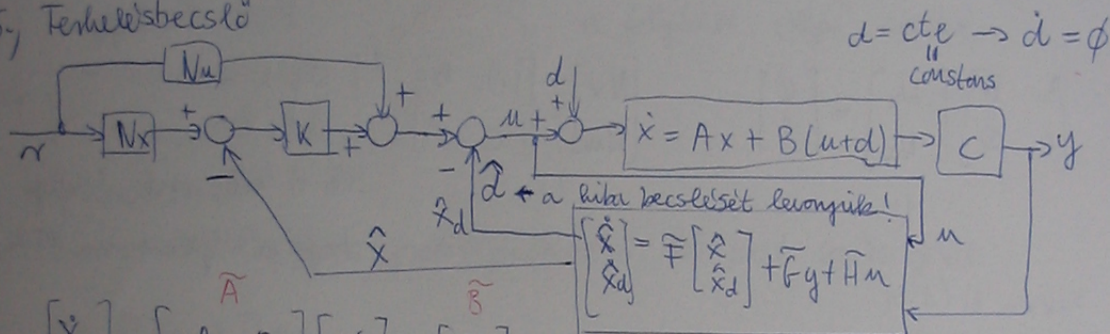 Terhelésbecslő
d = cte → ḋ = ϕ
constans
Nu
d
+
+ + + u + +
r Nx K ẋ = Ax + B(u+d) C y
+
− −
d̂ ← a hiba becslését levonjuk!
x̂d
x̂
[x̂̇ x̂̇d] = F̃ [x̂ x̂d] + G̃y + H̃u
u
Ã B̃